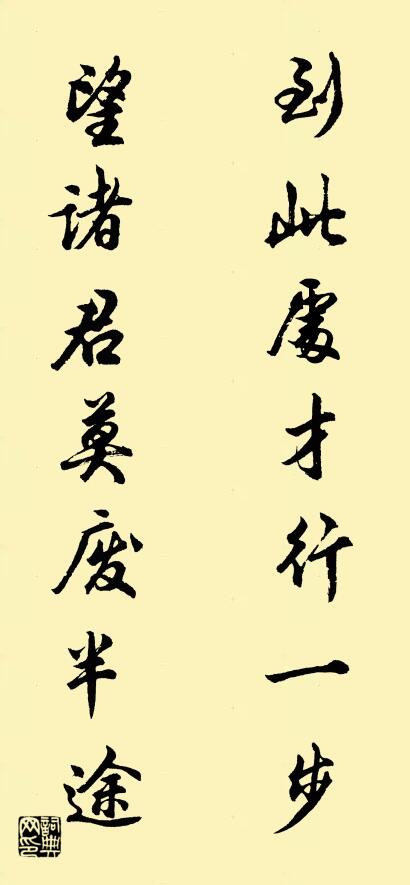 到此處才行一步
望诸君莫废半途
詞典网印